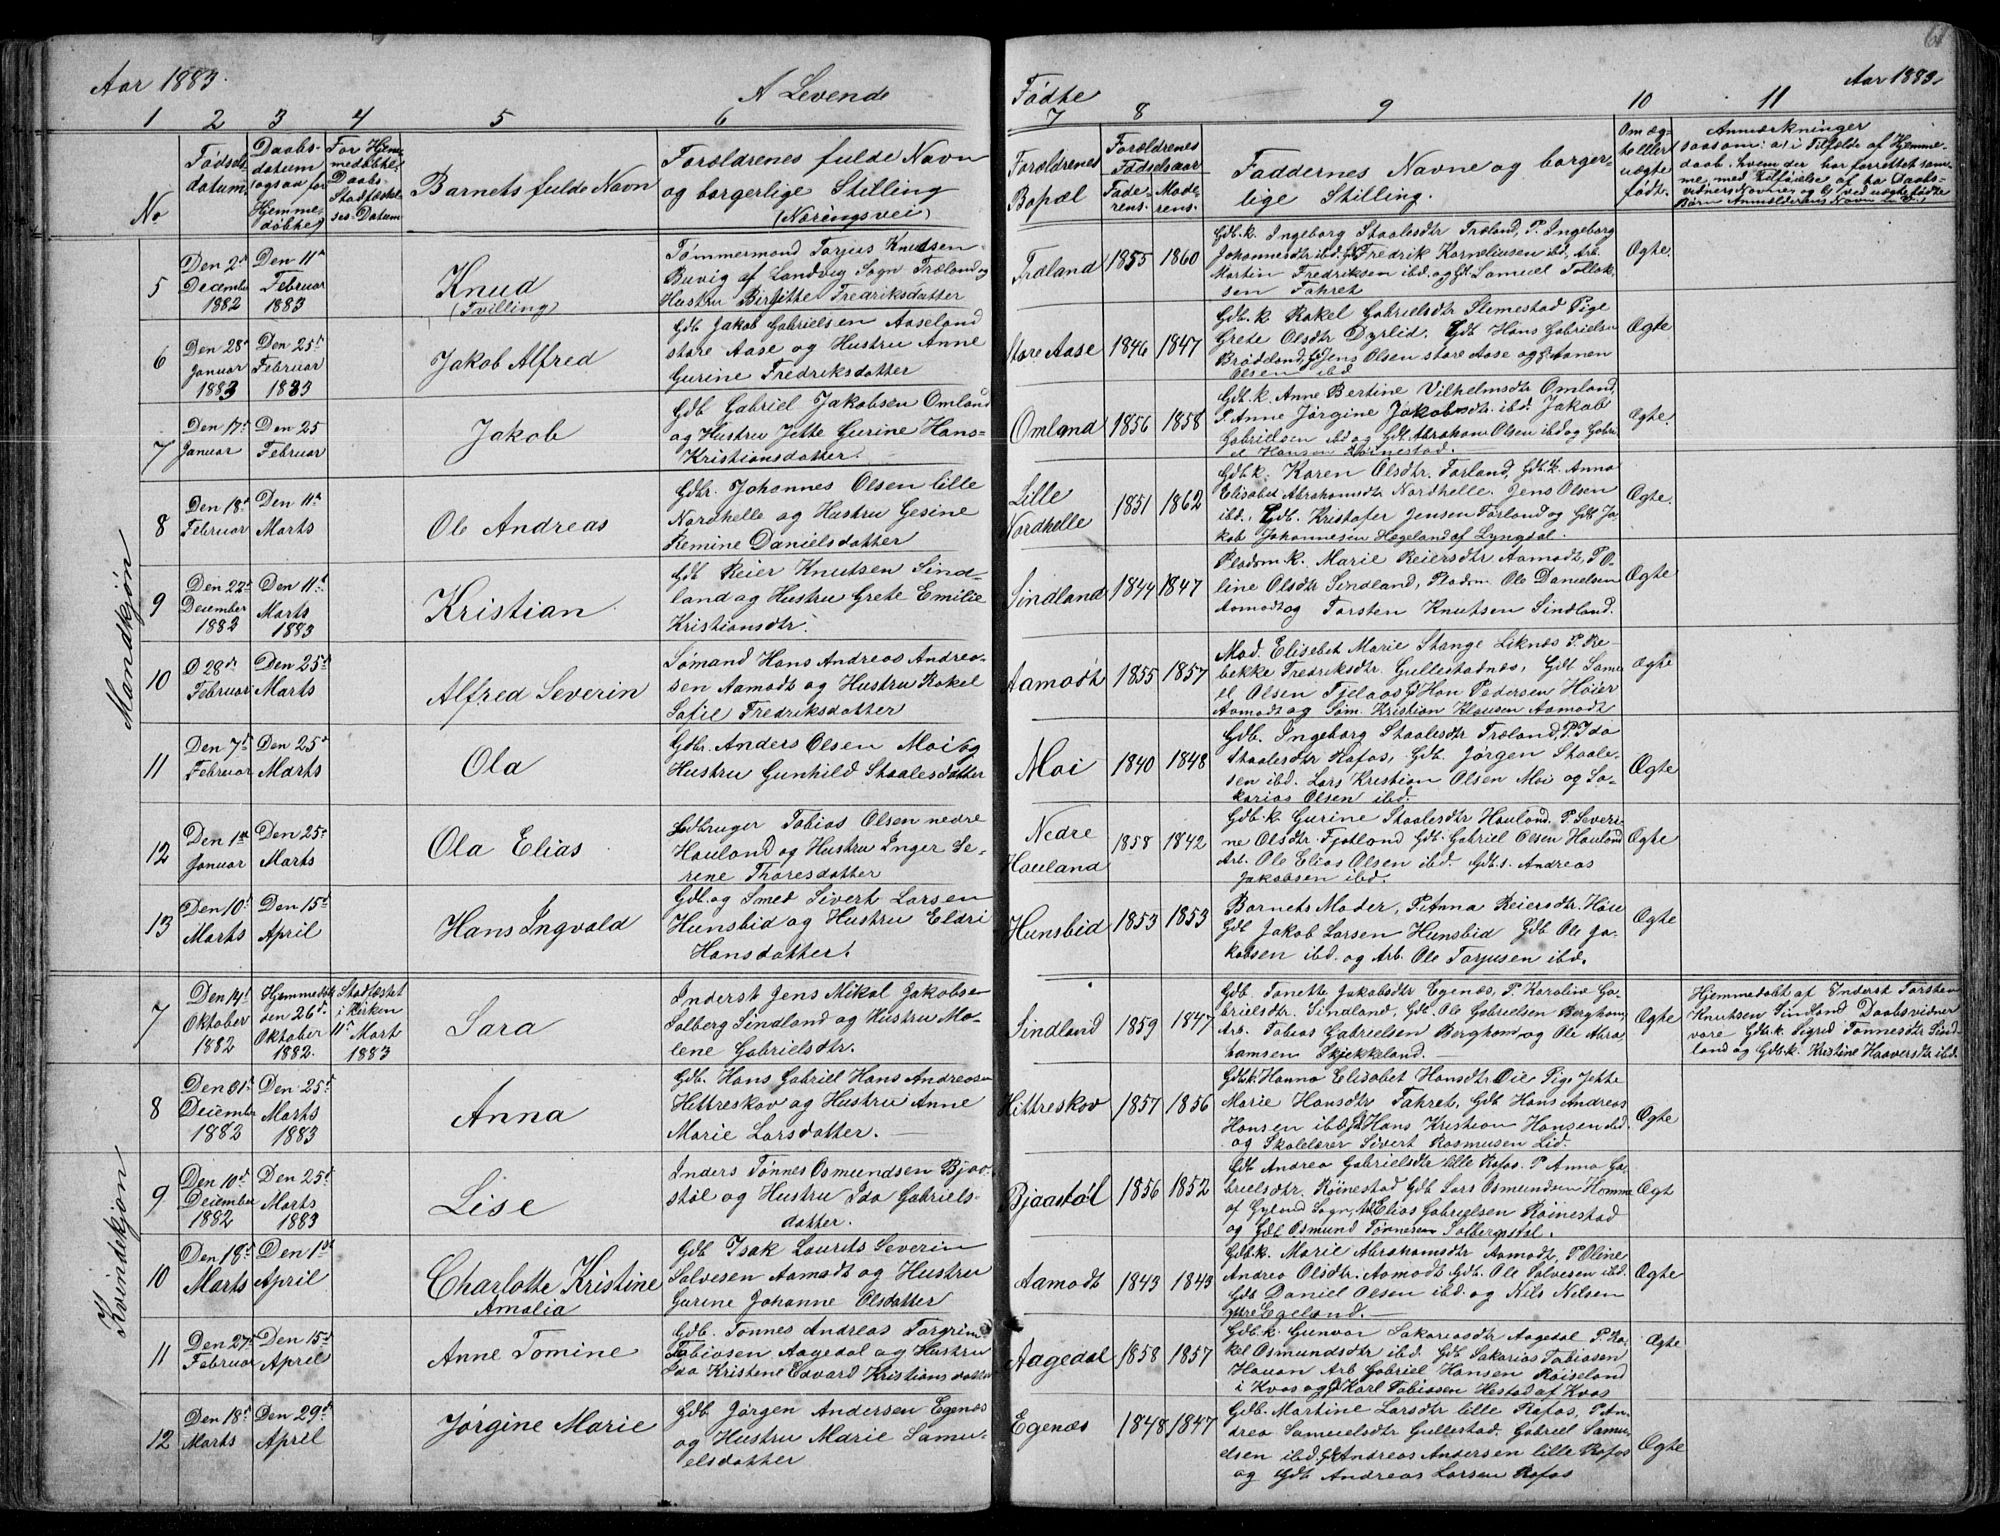 61
Aar 1883.
A Levende
Fødte
Aar 1883.
1 2 3 4 5 6
7 8 9 10 11
No
Fødsels
datum
Daabs-
datum
(ogsaa for
Hjemme
døbte)
For Hjem
medøbte:
Daabs-
Stadfæstel
ses-Datum
Barnets fulde Navn
Forældrenes fulde Navn
og borgerlige Stilling
(Næringsvei)
Forældrenes
Bopæl
Forældrenes
Fødselsaar
Fade-
rens
Mode-
rens
Faddernes Navne og borger-
lige Stilling.
Om æg-
te eller
uægte
født.
Anmærkninger
saasom: a) i Tilfælde af Hjemme-
daab, hvem der har forrettet sam-
me, med Tilføielse af to Daabs-
vidners Navne, og b) ved uægte fødte
Børn Anmelderens Navn
Mandkjøn
5
Den 2d
December
1882
Den 11te
Februar
1883
Knud
(Tvilling)
Tømmermand Torjus Knudsen
Buvig af Landvig Sogn Træland og
Hustru Birgitte Fredriksdatter
Træland
1855 1860
Gdb.k. Ingeborg Staalesdtr Træland, P. Ingeborg
Johannesdtr ibd. Fredrik Korneliusen ibd, Arb.
Martin Fredriksen ibd. og Gb. Samuel Tollak-
sen Fahret
Ægte.
6
Den 28d
Januar
1883
Den 25d
Februar
1883
Jakob Alfred
Gdb Jakob Gabrielsen Aaseland
store Aase og Hustru Anne
Gurine Fredriksdatter
Store Aase
1846 1847
Gdb.k. Rakel Gabrielsdtr Stemestad Pige
Grete Olsdtr Dyrlid. Gdb Hans Gabrielsen
Brådeland, Jens Olsen store Aase og Aanen
Olsen ibd
Ægte
7
Den 17d
Januar
Den 25
Februar
Jakob
Gdb Gabriel Jakobsen Omland
og Hustru Jette Gurine Hans-
Kristiansdatter.
Omland
1856 1858
Gdb.k. Anne Bertine Vilhelmsdtr Omland
P. Anne Jørgine Jakobsdtr. ibd. Jakob
Gabrielsen ibd og Gdb Abraham Olsen ibd og Gabri
el Hansen Røinestad.
Ægte.
8
Den 18d
Februar
Den 11te
Marts
Ole Andreas
Gdbr. Johannes Olsen lille
Nordhelle og Hustru Gesine
Remine Danielsdatter
Lille
Nordhelle
1851 1862
Gdb.k. Karen Olsdtr. Førland, Gdb.k. Anna
Elisabet Abrahamsdtr Nordhelle. Jens Olsen
ibd. Gdb. Kristofer Jensen Førland og Gdb Ja-
kob Johannesen Hegeland af Lyngdal.
Ægte.
9
Den 22d
December
1882
Den 11te
Marts
1883
Kristian
Gdb Reier Knutsen Sind-
land og Hustru Grete Emilie
Kristiansdtr.
Sindland
1844 1847
Pladsm.k. Marie Reiersdtr Aamodt, P. O-
line Olsdtr Sindland, Pladsm. Ole Danielsen
Aamodt og Torsten Knutsen Sindland.
Ægte
10
D. 28d
Februar
Den 25d
Marts
Alfred Severin
Sømand Hans Andreas Andrea-
sen Aamodt og Hustru Rakel
Sofie Fredriksdatter
Aamodt
1855 1857
Mad. Elisebet Marie Stange Liknes P. Re-
bekke Fredriksdtr Gullestadnes, Gdb Samu-
el Olsen Fjelaas Han Pedersen Høier
Aamodt og Søm. Kristian Klausen Aamodt
Ægte
11
Den 7d
Februar
Den 25d
Marts
Ola
Gdbr. Anders Olsen Moi og
Hustru Gunhild Staalesdatter
Moi
1840 1848
Gdb. Ingeborg Staalesdtr Træland, P. Ida
Staalesdtr Rafos, Gdb. Jørgen Staale-
sen ibd. Lars Kristian Olsen Moi og Sa-
karias Olsen ibd.
Ægte
12
Den 1ste
Januar
Den 25d
Marts
Ola Elias
Gdbruger Tobias Olsen nedre
Hauland og Hustru Inger Se-
rene Thoresdatter
Nedre
Hauland
1858 1842
Gdb.k Gurine Staalesdtr Hauland. P. Severi-
ne Olsdtr Fjotland Gdb Gabriel Olsen Hauland
Arb. Ole Elias Olsen ibd. Gdb.s. Andreas
Jakobsen ibd.
Ægte
13
Den 10d
Marts
Den 15d
April
Hans Ingvald
Gdb. og Smed Sivert Larsen
Hunsbid og Hustru Eldri
Hansdatter.
Hunsbid
1853 1853
Barnets Moder, P. Anna Reiersdtr. Høie
Gdb Jakob Larsen Hunsbid Gdb Ole Ja-
kobsen ibd. og Arb. Ole Torjusen ibd.
Ægte
Kvindekjøn
7
Den 14d
Oktober
1882
Hjemmedøbt
den 26d.
Oktober
1882.
Stadfæstet
i Kirken
11te Marts
1883
Sara
Inderst Jens Mikal Jakobsen
Solberg Sindland og Hustru Ma-
lene Gabrielsdtr.
Sindland
1859 1847
Gdb Tonette Jakobsdtr Egenæs, P. Karoline Ga-
brielsdtr. Sindland, Gdb. Ole Gabrielsen Berghom
Arb. Tobias Gabrielsen Berghom og Ole Abra-
hamsen Skjekkeland.
Ægte
Hjemmedøbt af Inderst Torsten
Knutsen Sindland Daabsvidner
vare Gdb.k. Sigrid Tønnesdtr Sind-
land og Gdb.k. Kristine Haaversdtr ibd.
8
Den 31d
December
1882
Den 25d
Marts
1883
Anna
Gdb. Hans Gabriel Hans Andreasen
Hittreskov og Hustru Anne
Marie Larsdatter.
Hittreskov
1857 1856
Gdb.k. Hanna Elisabet Hansdtr Oie Pige Jette
Marie Hansdtr Fahret, Gdb Hans Andreas
Hansen ibd Hans Kristian Hansen ibd.
og Skolelærer Sivert Rasmusen Lid.
Ægte
9
Den 10d
December
1882
Den 25d
Marts
1883
Lise
Inders Tønnes Osmundsen Bjaa-
støl og Hustru Ida Gabriels-
datter.
Bjaastøl
1856 1852
Gdb Andrea Gabrielsdtr lille Rafos. P. Anna Ga-
brielsdtr. Røinestad Gdb Lars Osmundsen Homme
af Gyland Sogn, Elias Gabrielsen Røinestad
og Gdb Osmund Tønnesen Solbergstøl.
Ægt
10
Den 18d
Marts
Den 1ste
April
Charlotte Kristine
Amalia
Gdb Isak Laurits Severin
Salvesen Aamodt og Hustru
Gurine Johanne Olsdatter
Aamodt
1843 1843
Gdb.k. Marie Abrahamsdtr Aamodt, P. Oline
Andrea Olsdtr. Aamodt Gdb. Ole Salvesen ibd.
Gdb Daniel Olsen ibd. og Nils Nilsen
Egeland.
Ægte
11
Den 27d
Februar
Den 15d
April
Anne Tomine
Gdb. Tønnes Andreas Torgrim
Tobiasen Aagedal og Hustru
Ida Kristene Edvard Kristiansdatter
Aagedal
1858 1857
Gdb.k. Gunvor Sakariasdtr Aagedal P. Ra-
kel Osmundsdtr ibd. Gdb Sakarias Tobiassen
Hauan Arb Gabriel Hansen Røiseland
i Kvås og Karl Tobiassen Hestad af Kvås
Ægte
12
Den 18d
Marts
Den 29d
April
Jørgine Marie
Gdb Jørgen Andersen Egenæs
og Hustru Marie Samu-
elsdatter
Egenæs
1848 1847
Gdb. Martine Larsdtr lille Rafos, P. An-
drea Samuelsdtr Gullestad. Gabriel Samu-
elsen ibd. Andreas Andersen lille Rafos
og Gdb Andreas Larsen Rafos
Ægte